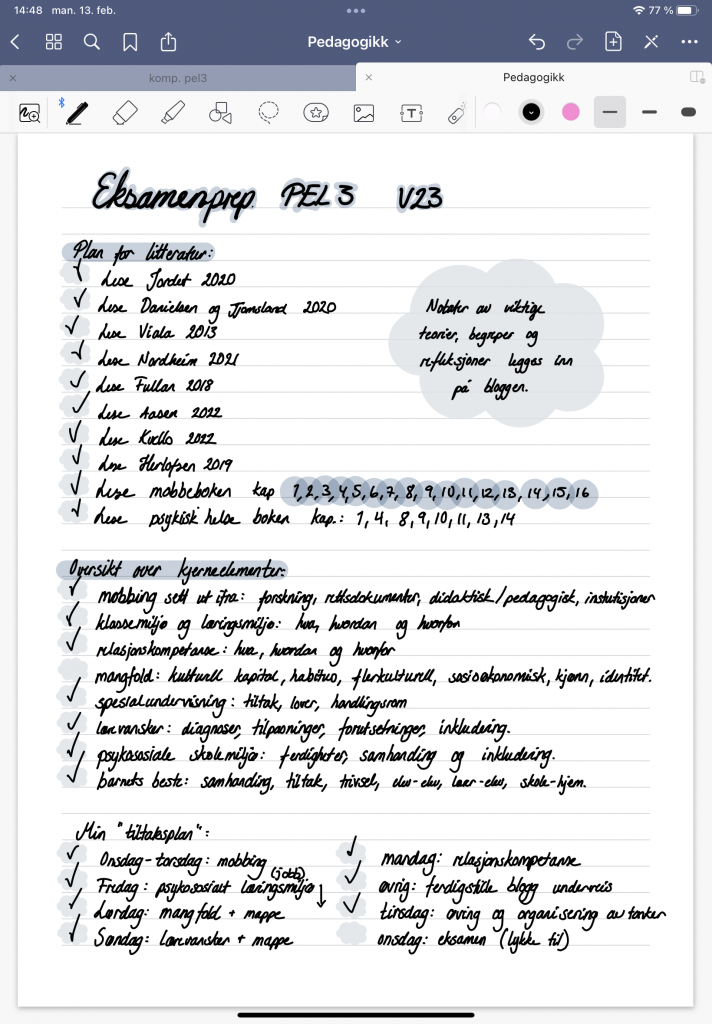 14:48 man. 13. feb.
77 %
Pedagogikk
komp. pel3
Pedagogikk
Eksamenprep. PEL 3 V23
Plan for litteratur:
Lese Jordet 2020
Lese Danielsen og Tjomsland 2020
Lese Viala 2013
Lese Nordheim 2021
Lese Fullan 2018
Lese Aasen 2022
Lese Kvello 2022
Lese Herlofsen 2019
Lese mobbeboken kap 1,2,3,4,5,6,7,8,9,10,11,12,13,14,15,16
Lese psykisk helse boken kap.: 1, 4, 8, 9, 10, 11, 13, 14
Notater av viktige
teorier, begreper og
refleksjoner legges inn
på bloggen.
Oversikt over kjerneelementer:
mobbing sett ut ifra: forskning, rettsdokumenter, didaktisk/pedagogisk, instutisjoner
klassemiljø og læringsmiljø: hva, hvordan og hvorfor
relasjonskompetanse: hva, hvordan og hvorfor
mangfold: kulturell kapital, habitus, flerkulturell, sosioøkonomisk, kjønn, identitet.
spesialundervisning: tiltak, lover, handlingsrom
lærevansker: diagnoser, tilpasninger, forutsetninger, inkludering.
psykososiale skolemiljø: ferdigheter, samhandling og inkludering.
barnets beste: samhandling, tiltak, trivsel, elev-elev, lærer-elev, skole-hjem.
Min "tiltaksplan":
Onsdag-torsdag: mobbing
(jobb)
Fredag: psykososialt læringsmiljø
Lørdag: mangfold + mappe
Søndag: lærevansker + mappe
mandag: relasjonskompetanse
øvrig: ferdigstille blogg underveis
tirsdag: øving og organisering av tanker
onsdag: eksamen (lykke til)